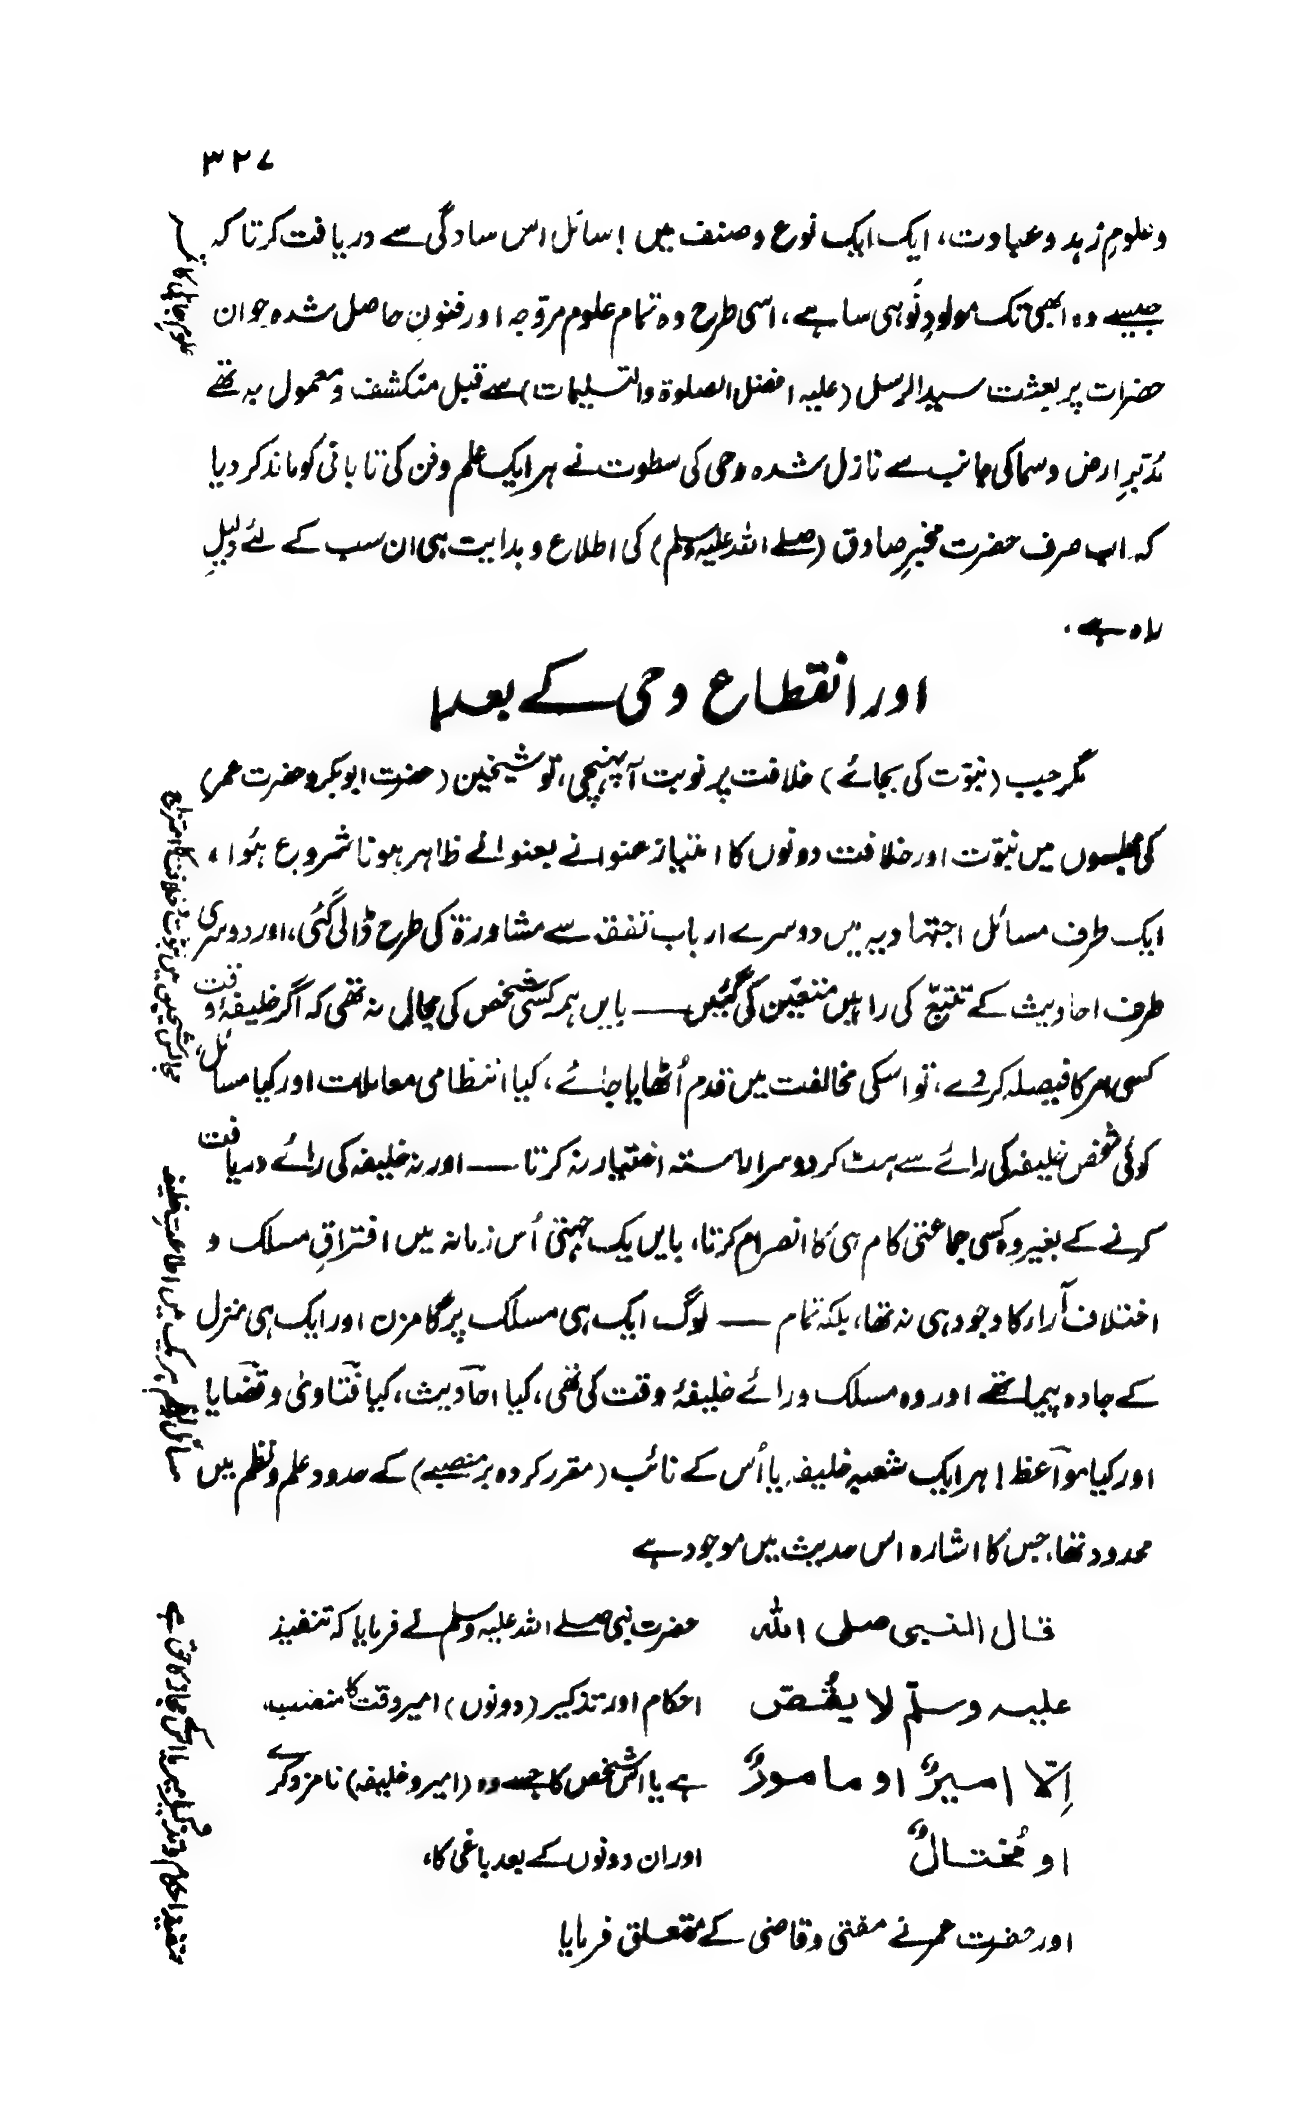 ۳۲۷
وعلومِ زہد وعبادت، ایک ایک نوع وصنف میں! سائل اس سادگی سے دریافت کرتا کہ
جیسے وہ ابھی تک مولودِ نَو ہی سا ہے، اسی طرح وہ تمام علوم مروّجہ اور فنونِ حاصل شدہ جو ان
حضرات پر بعثت سید الرسل (علیہ افضل الصلوۃ والتسلیمات) سے قبل منکشف ومعمول بہ تھے
مُدبّرِ ارض وسما کی جانب سے نازل شدہ وحی کی سطوت نے ہر ایک علم وفن کی تابانی کو ماند کر دیا
کہ اب صرف حضرت مخبرِ صادق (صلے اللہ علیہ وسلم) کی اطلاع وہدایت ہی ان سب کے لئے دلیلِ
راہ ہے۔
اور انقطاع وحی کے بعد!
مگر جب (نبوّت کی بجائے) خلافت پر نوبت آپہنچی، تو شیخین (حضرت ابوبکر وحضرت عمر)
کی مجلسوں میں نبوّت اور خلافت دونوں کا امتیاز عنوانے بعنوانے ظاہر ہونا شروع ہُوا،
ایک طرف مسائل اجتہادیہ میں دوسرے ارباب تفقہ سے مشاورۃ کی طرح ڈالی گئی، اور دوسری
طرف احادیث کے تتبع کی راہیں متعیّن کی گئیں — بایں ہمہ کسی شخص کی مجال نہ تھی کہ اگر خلیفۂ وقت
کسی امر کا فیصلہ کر دے، تو اسکی مخالفت میں قدم اُٹھایا جائے، کیا انتظامی معاملات اور کیا مسائل
کوئی شخص خلیفہ کی رائے سے ہٹ کر دوسرا راستہ اختیار نہ کرتا — اور نہ خلیفہ کی رائے دریافت
کرنے کے بغیر وہ کسی جماعتی کام ہی کا انصرام کرتا، بایں یک جہتی اُس زمانہ میں افتراقِ مسلک و
اختلاف آراء کا وجود ہی نہ تھا، بلکہ تمام — لوگ ایک ہی مسلک پر گامزن اور ایک ہی منزل
کے جادہ پیما تھے اور وہ مسلک ورائے خلیفۂ وقت کی تھی، کیا احادیث، کیا فتاویٰ وقضایا
اور کیا مواعظ! ہر ایک شعبہ خلیفہ یا اُس کے نائب (مقرر کردہ بر منصبے) کے حدود علم ونظم میں
محدود تھا، جس کا اشارہ اس حدیث میں موجود ہے
قال النبی صلی اللہ
علیہ وسلّم لا یقُصّ
اِلّا امیرٌ او مامورٌ
او مُختالٌ
حضرت نبی صلے اللہ علیہ وسلم نے فرمایا کہ تنفیذ
احکام اور تذکیر (دونوں) امیر وقت کا منصب،
ہے یا اس شخص کا جسے وہ (امیر وخلیفہ) نامزد کرے
اور ان دونوں کے بعد باغی کا،
اور حضرت عمر نے مفتی وقاضی کے متعلق فرمایا
مجالس شیخین میں نبوّت وخلافت کا امتزاج
مسائل ہر یک میں اطاعتِ خلیفہ
تنفیذ احکام وتذکیر امیر یا اسکے مجاز کا حق ہے